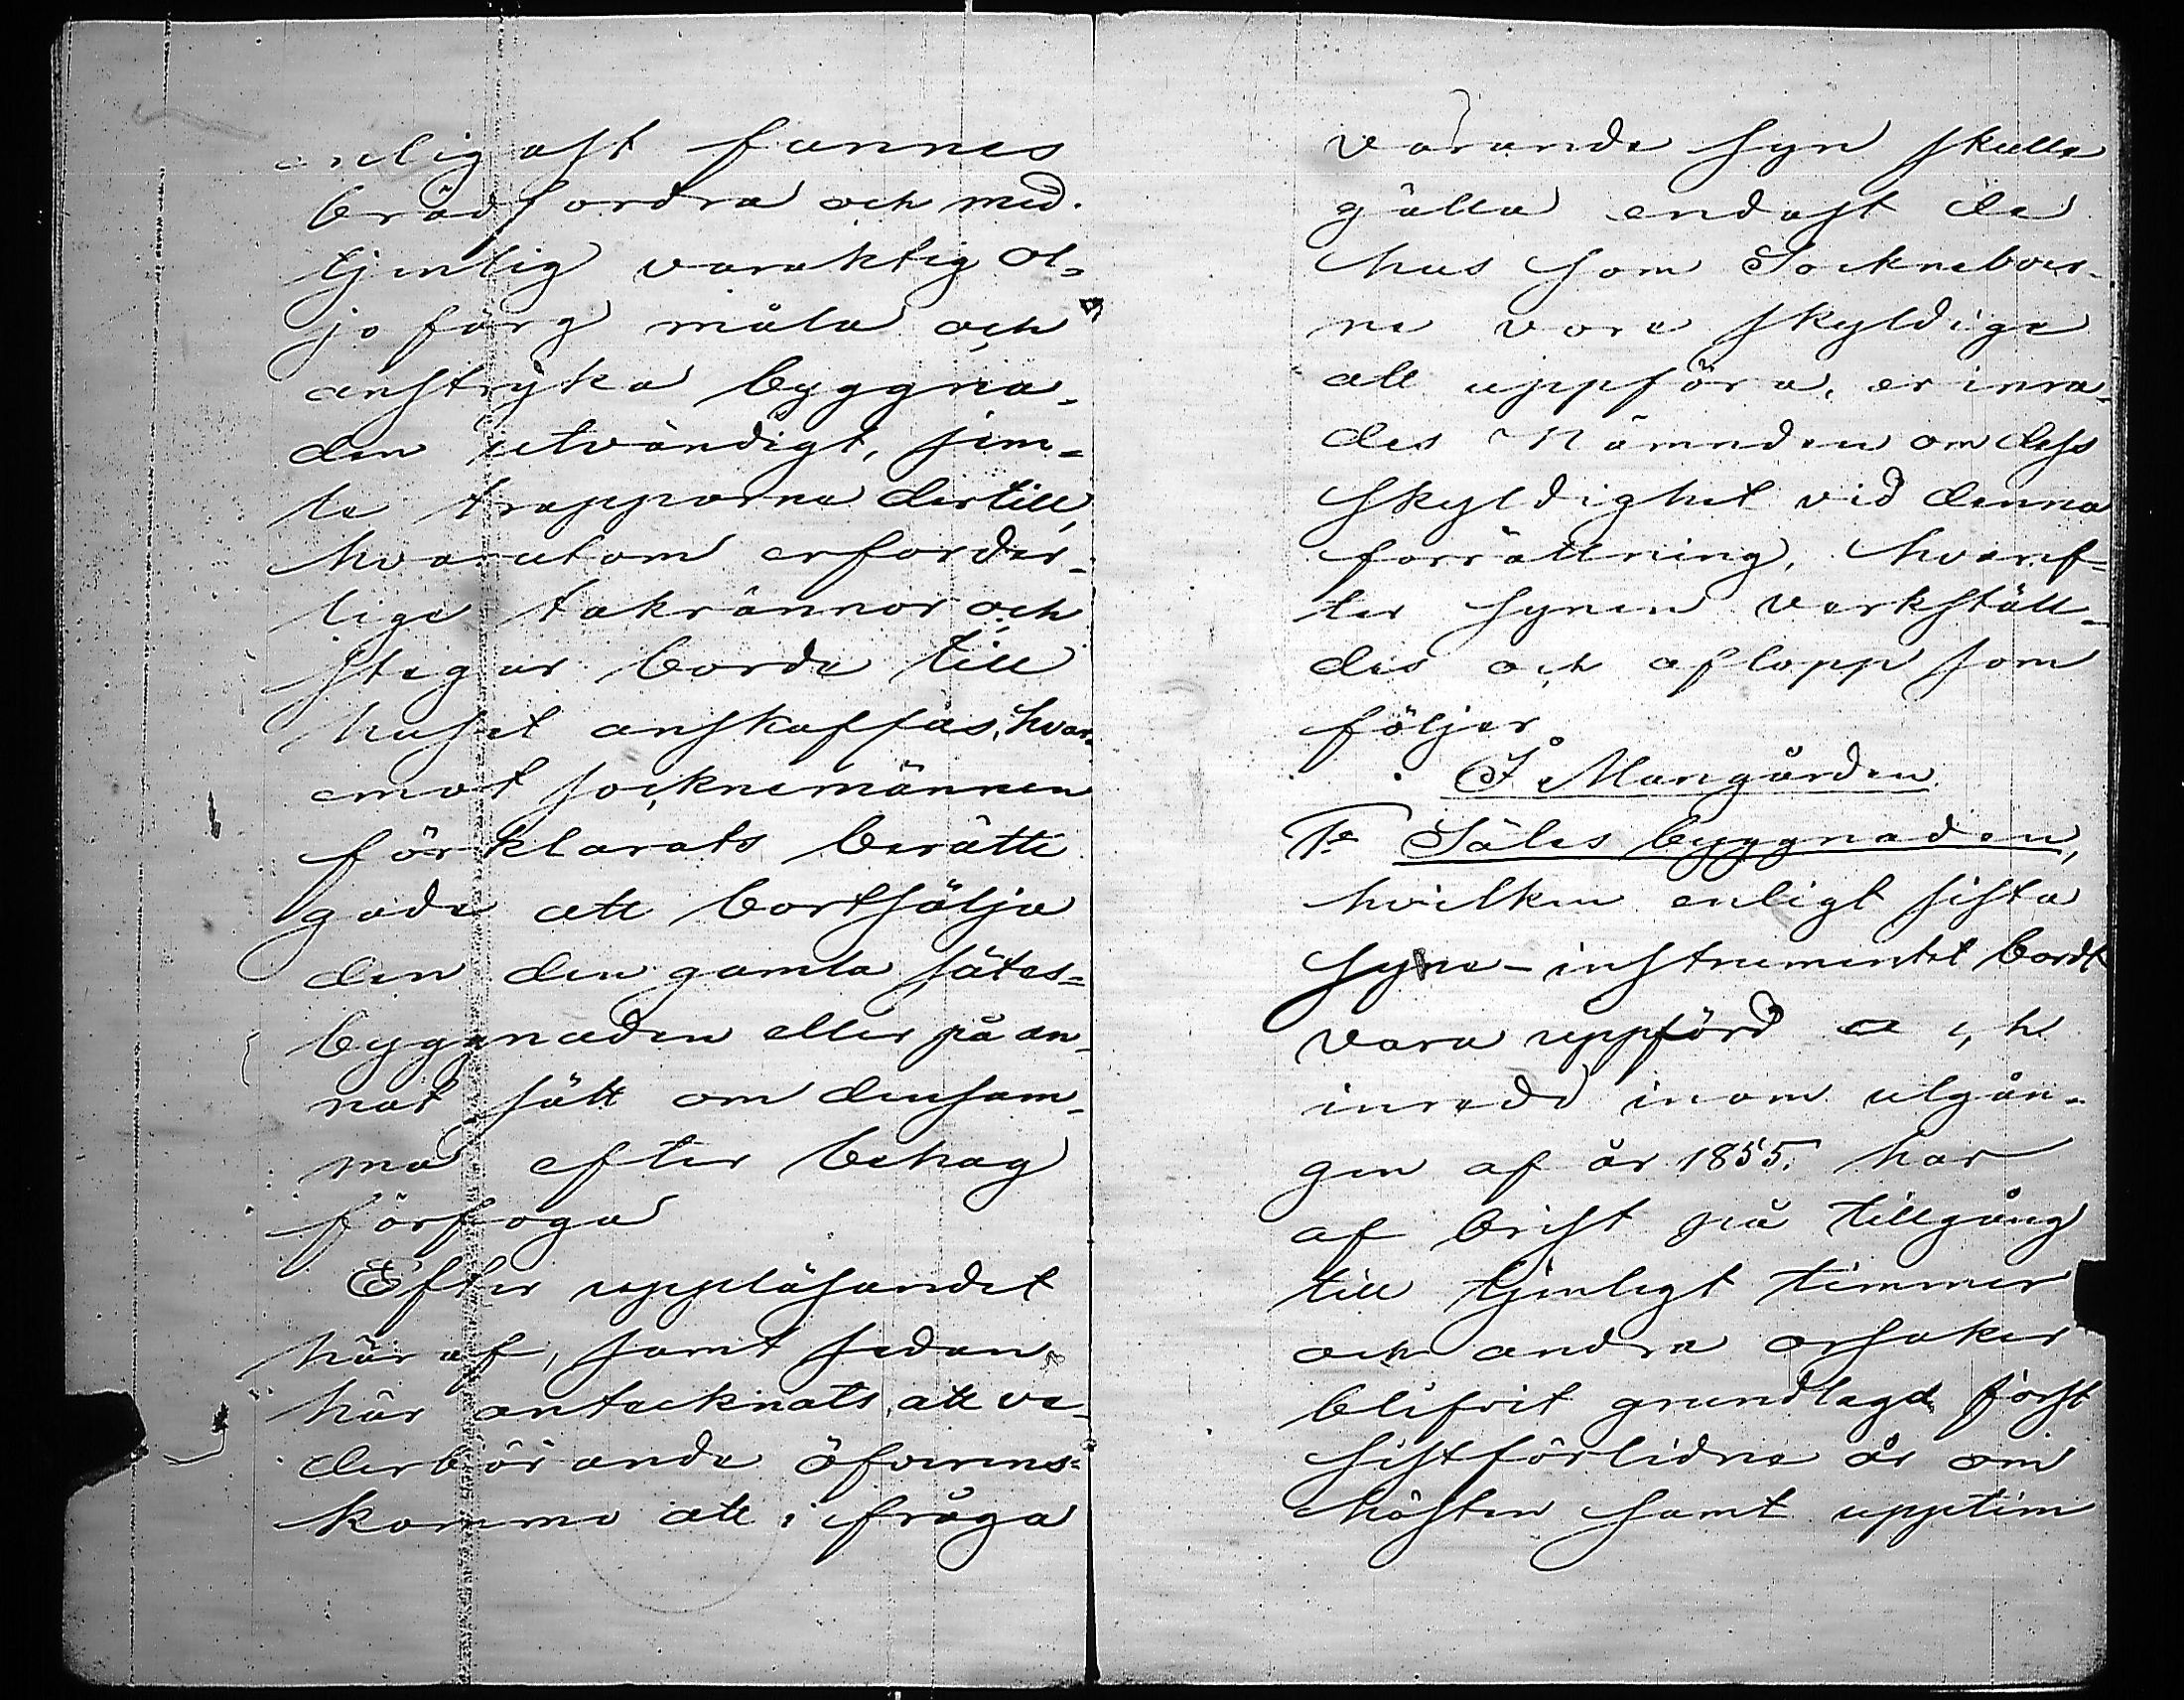 enligast funnes
brädfordra och med
tjenlig varaktig ol=
jo färg måla och
anstryka byggna=
den utvändigt, jem=
te trapporna dertill,
hvarutom erforder=
lige takrännor och
stegar borde till
huset anskaffas, hvar=
emot socknemännen
förklarats berätti
gade att bortsälja
den den gamla sätes=
byggnaden eller på an=
nat sätt om densam=
ma efter behag
förfoga
Efter uppläsandet
häraf, samt sedan
här antecknats, att ve=
derbörande öfverens=
kommo att i fråga
varande syn skulle
gälla endast de
hus som Sockneboer=
ne vore skyldige
att uppföra, erinra=
des Nämnden om dess
skyldighet vid denna
förrättning, hvaref=
ter synen verkställ=
des och aflopp som
följer
I Mangården
1o Sätes byggnaden,
hvilken enligt sista
syne-instrumentet bordt
vara uppförd och
inredd inom utgån=
gen af år 1855. har
af brist på tillgång
till tjenligt timmer
och andra orsaker
blifvit grundlagd först
sistförlidne år om
hösten samt upptim